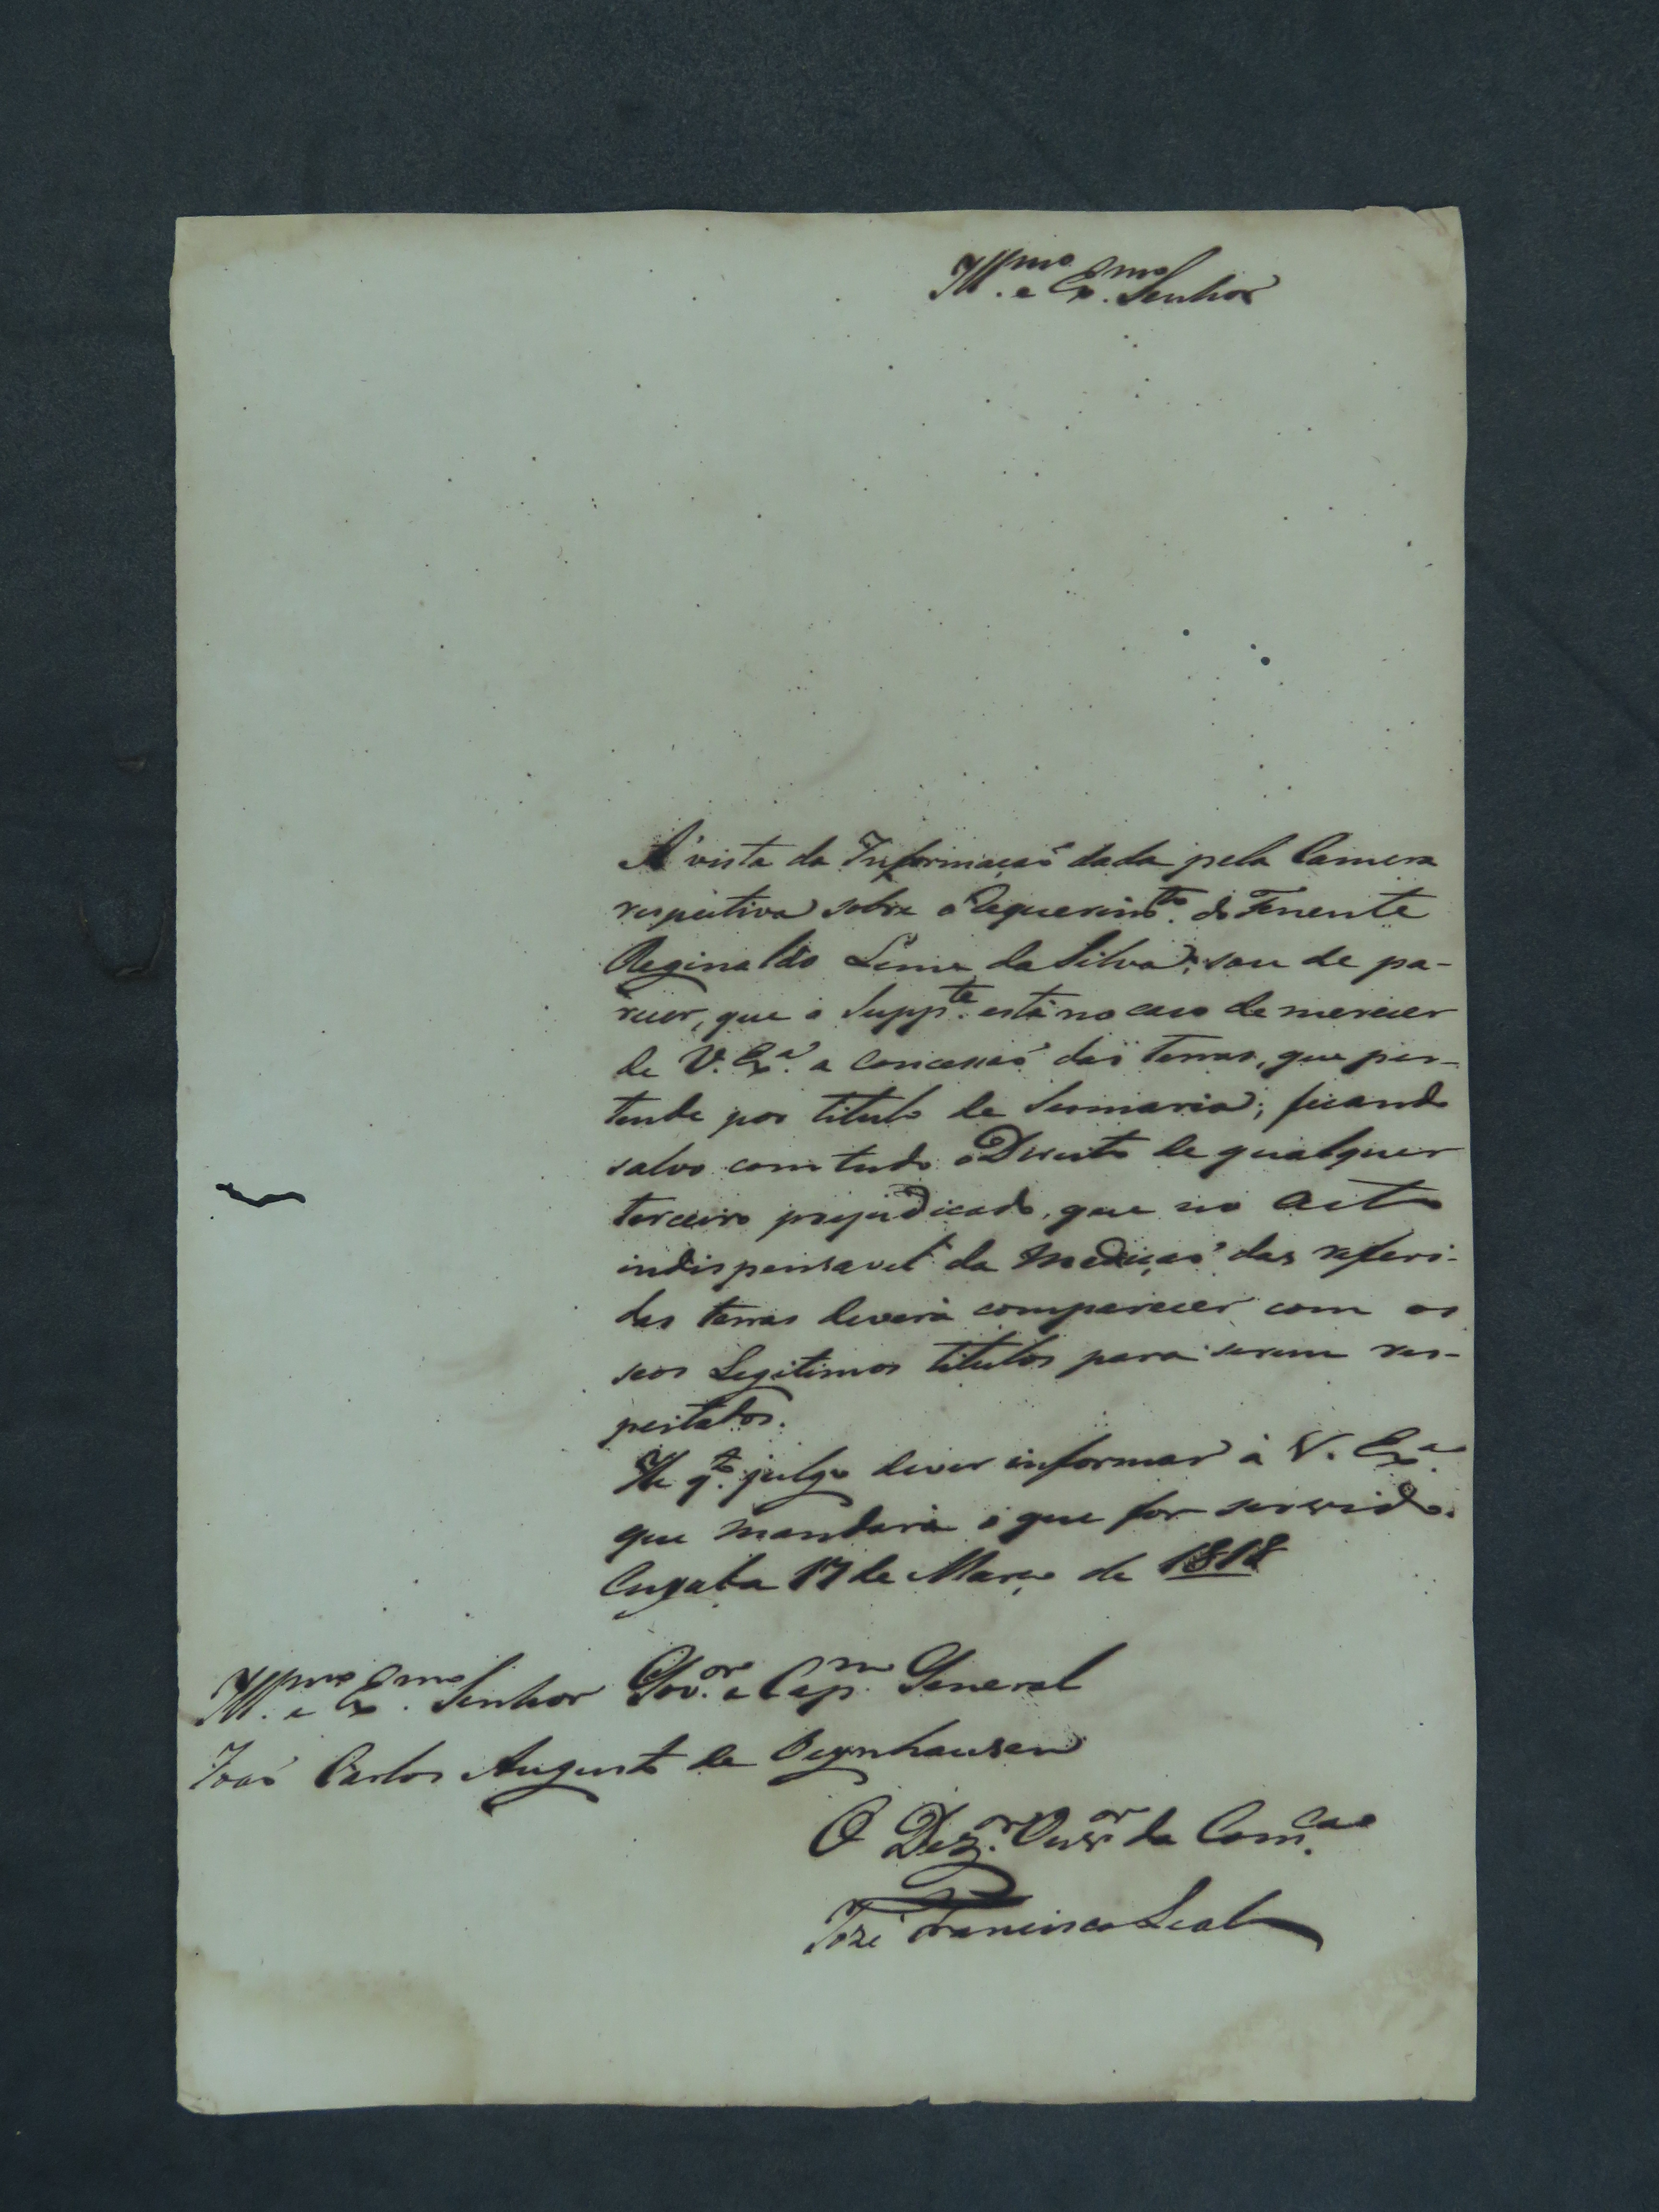 Ill.mo e Ex.mo Senhor
A' vista da Informaçaõ dada pela Camera
respectiva sobre o Requerim.to do Tenente
Reginaldo Lima da Silva; sou de pa-
recer, que o Supp.te está no caso de merecer
de V. Ex.a a concessaõ das terras, que per-
tende por titulo de Sesmaria; ficando
salvo com tudo o Direito de qualquer
terceiro prejudicado, que no acto
indispensavel da Mediçaõ das referi-
das terras deverá comparecer com os
seos Legitimos titulos para serem res-
peitados.
He q.to julgo dever informar à V. Ex.a
que mandará o que for servido.
Cuyaba 17 de Março de 1818
Ill.mo e Ex.mo Senhor Gov.or e Cap.m General
Joaõ Carlos Augusto de Oeynhausen
O Dez.or Ouv.or da Com.ca
Jozé Francisco Leal